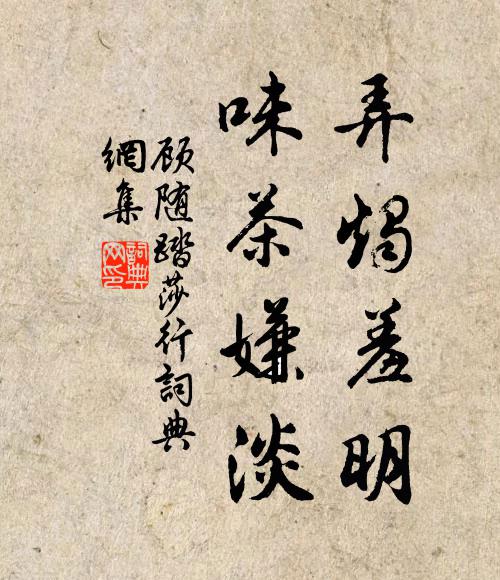 弄燭羞明
味茶嫌淡
顾随踏莎行詞典
網集
詞典
网印